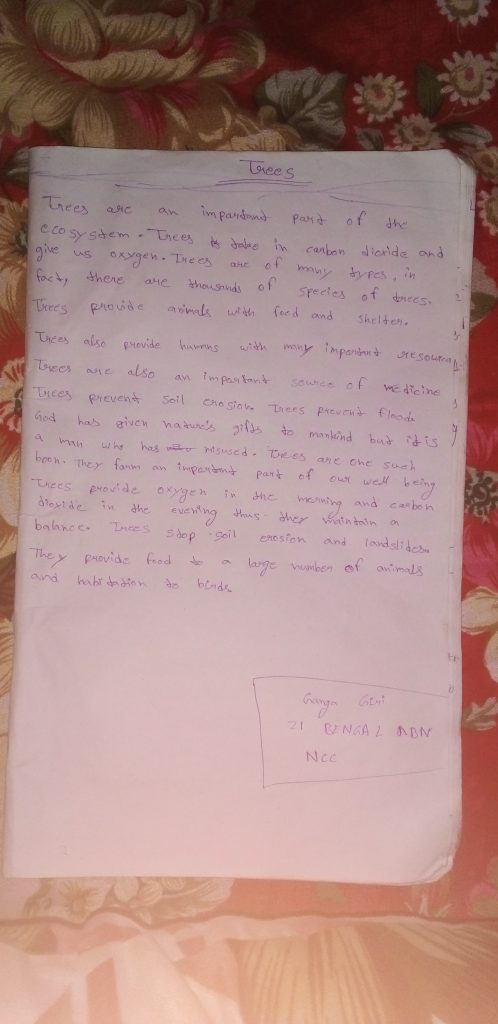 Trees
Trees are an impardant part of the
ecosystem. Trees take in carbon dioxide and
give us oxygen. Trees are of many types, in
fact, there are thousands of species of trees.
Trees provide animals with food and shelter.
Trees also provide humans with many important resources
Trees are also an important source of medicine
Trees prevent soil erosion. Trees prevent floods
God has given nature's gifts to mankind but it is
a man who has misused. Trees are one such
boon. They form an important part of our well being
Trees provide oxygen in the morning and carbon
dioxide in the evening thus they maintain a
balance. Trees stop soil erosion and landslides.
They provide food to a large number of animals
and habitation to birds
Ganga Giri
21 BENGAL BN
NCC